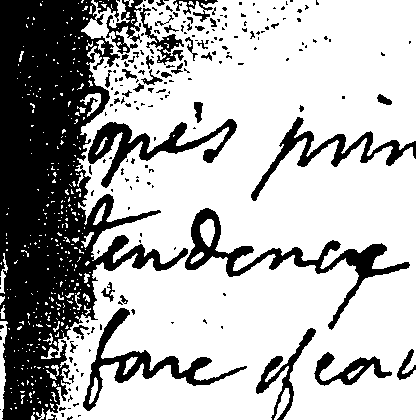 Pope's prin
tendency
fore of eac